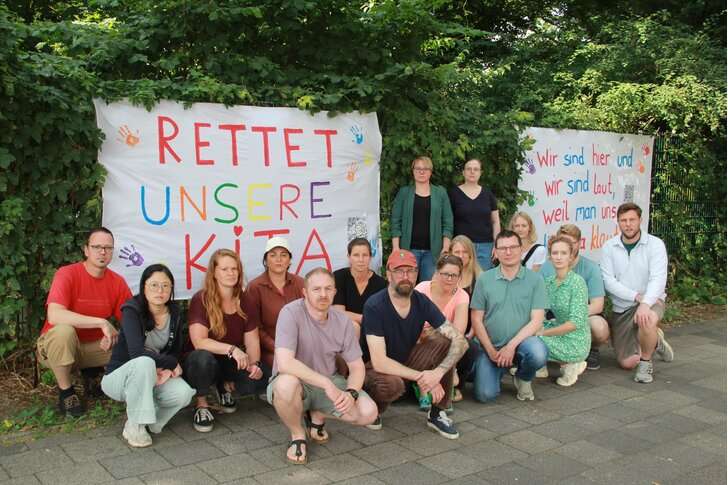 RETTET
UNSERE
KiTA
Wir sind hier und
wir sind laut,
weil man uns